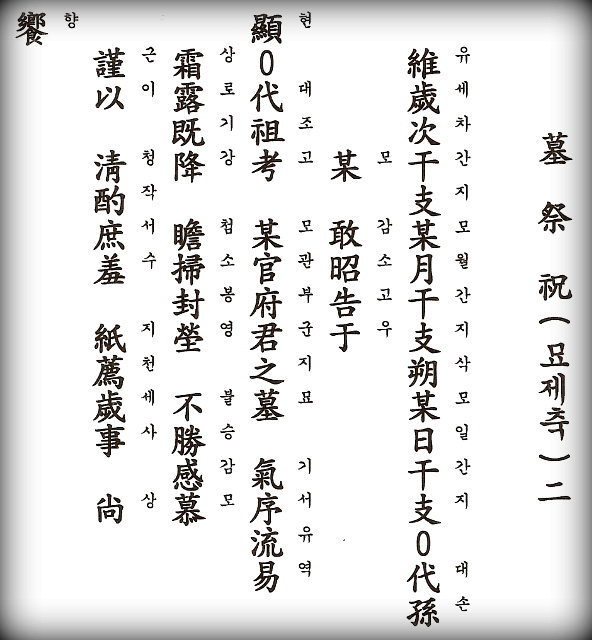 墓祭祝(묘제축)二
維歲次干支某月干支朔某日干支0代孫
유세차간지모월간지삭모일간지 대손
某 敢昭告于
모 감소고우
顯0代祖考 某官府君之墓 氣序流易
현 대조고 모관부군지묘 기서유역
霜露既降 瞻掃封塋 不勝感慕
상로기강 첨소봉영 불승감모
謹以 清酌庶羞 紙薦歲事 尚
근이 청작서수 지천세사 상
饗
향